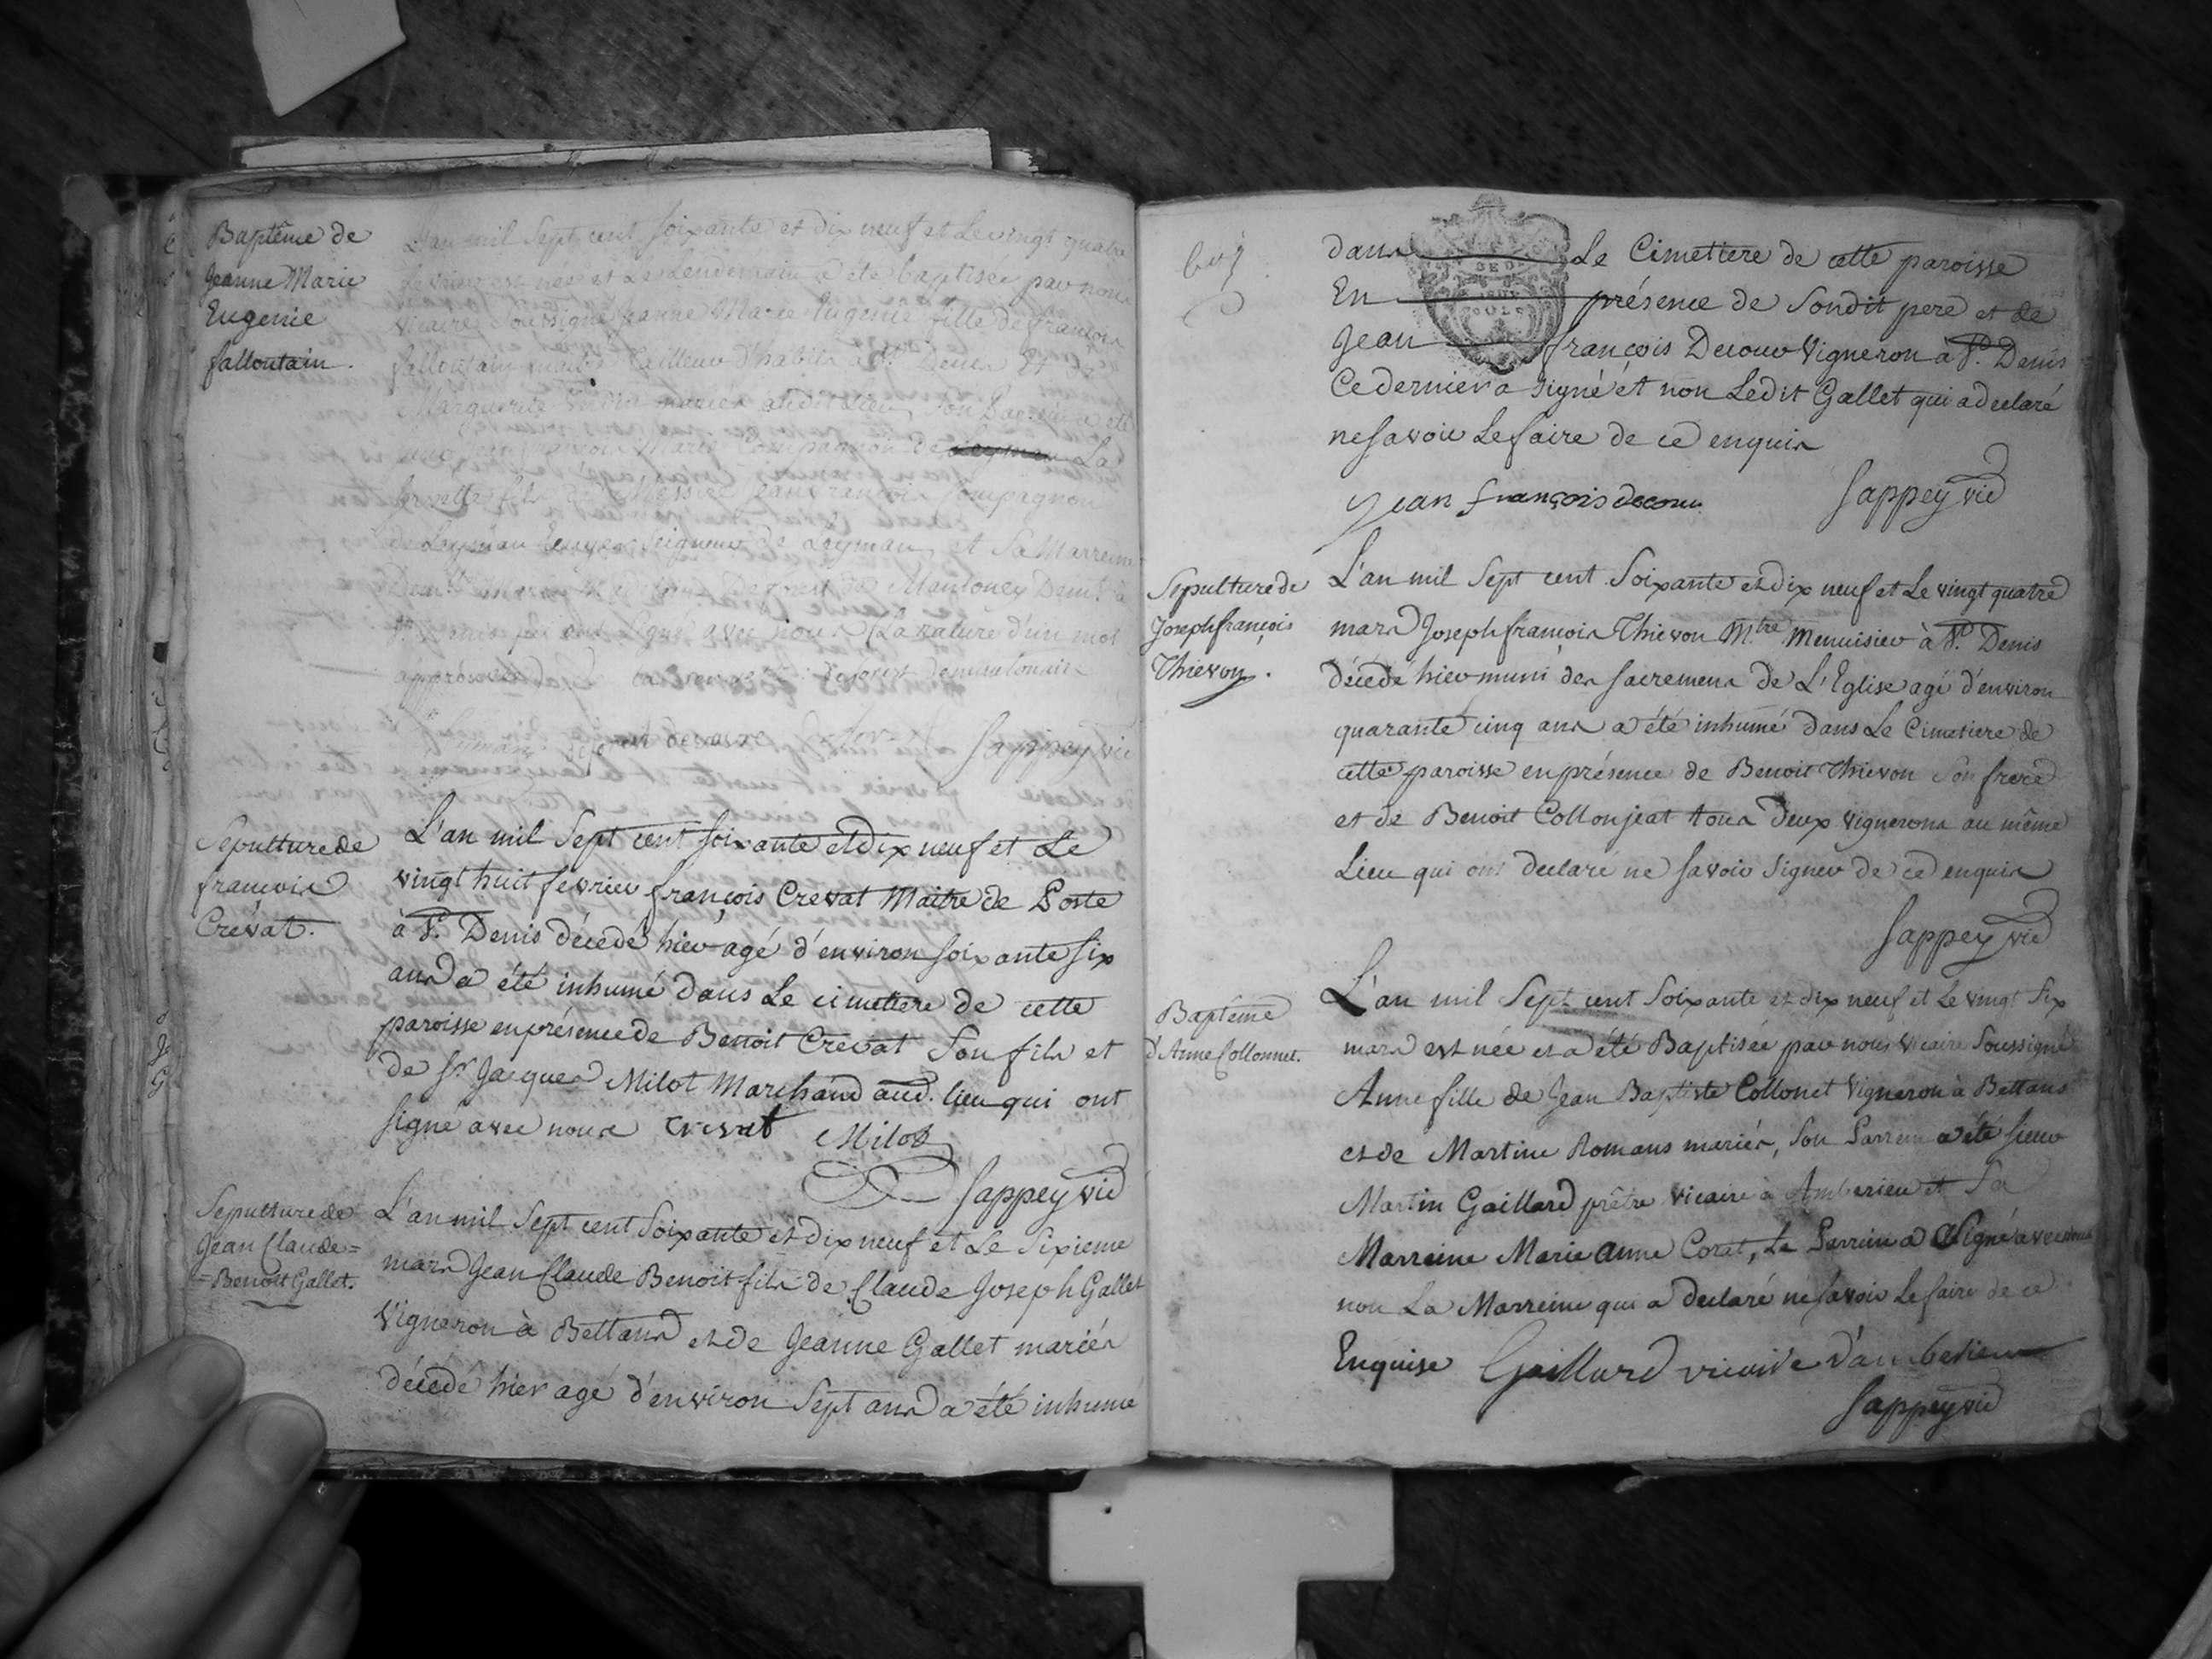 Baptême de
Jeanne Marie
Eugenie
falloutain.
L'an mil Sept cent soixante et dix neuf et Le vingt quatre
est née et Le Lendemain a été baptisée par nous
vicaire Soussigné Jeanne Marie Eugenie fille de françois
falloutain tailleur d'habits à St. Denis Et de
Marguerite mariés audit Lieu, son Parrein a été
françois Marie Compagnon de Leyman La
fils de Messire Jean françois Compagnon
de Leyman Ecuyer Seigneur de Leyman, et Sa Marreine
St. Denis qui ont signé avec nous La rature d'un mot
approuvée
Sappey vic
Sepulture de
françois
Crevat.
L'an mil Sept cent soixante et dix neuf et Le
vingt huit février françois Crevat Maitre de Poste
à St. Denis décédé hier agé d'environ soixante six
ans a été inhumé dans Le cimetiere de cette
paroisse en présence de Benoit Crevat Son fils et
de Sr. Jacques Milot Marchand aud. lieu qui ont
signé avec nous crevat Milot
Sappey vic
Sepulture de
Jean Claude=
=Benoit Gallet.
L'an mil Sept cent Soixante et dix neuf et Le Sixieme
mars Jean Claude Benoit fils de Claude Joseph Gallet
Vigneron à Bettans et de Jeanne Gallet mariés
décédé hier agé d'environ Sept ans a été inhumé
dans Le Cimetiere de cette paroisse
En présence de Sondit pere et de
Jean françois Decour Vigneron à St. Denis
Ce dernier a signé et non Ledit Gallet qui a declaré
ne Savoir Le faire de ce enquis
Jean françois decour
Sappey vic
Sepulture de
Joseph françois
Thievon.
L'an mil Sept cent Soixante et dix neuf et Le vingt quatre
mars Joseph françois Thievon Mtre. Menuisier à St. Denis
décédé hier muni des sacremens de L'Eglise agé d'environ
quarante cinq ans a été inhumé dans Le Cimetiere de
cette paroisse en présence de Benoit Thievon Son frere
et de Benoit Collonjeat tous deux Vignerons au même
Lieu qui ont declaré ne savoir signer de ce enquis
Sappey vic
Baptême
d'Anne Collonnet.
L'an mil Sept cent Soixante et dix neuf et Le vingt Six
mars est née et a été Baptisée par nous Vicaire Soussigné
Anne fille de Jean Baptiste Collonet Vigneron à Bettans
et de Martine Romans mariés, Son Parrein a été sieur
Martin Gaillard prêtre vicaire à Amberieu et Sa
Marreine Marie anne Corat, Le Parrein a Signé avec nous
non La Marreine qui a declaré ne Savoir Le faire de ce
Enquise Gaillard vicaire d'amberieu
Sappey vic